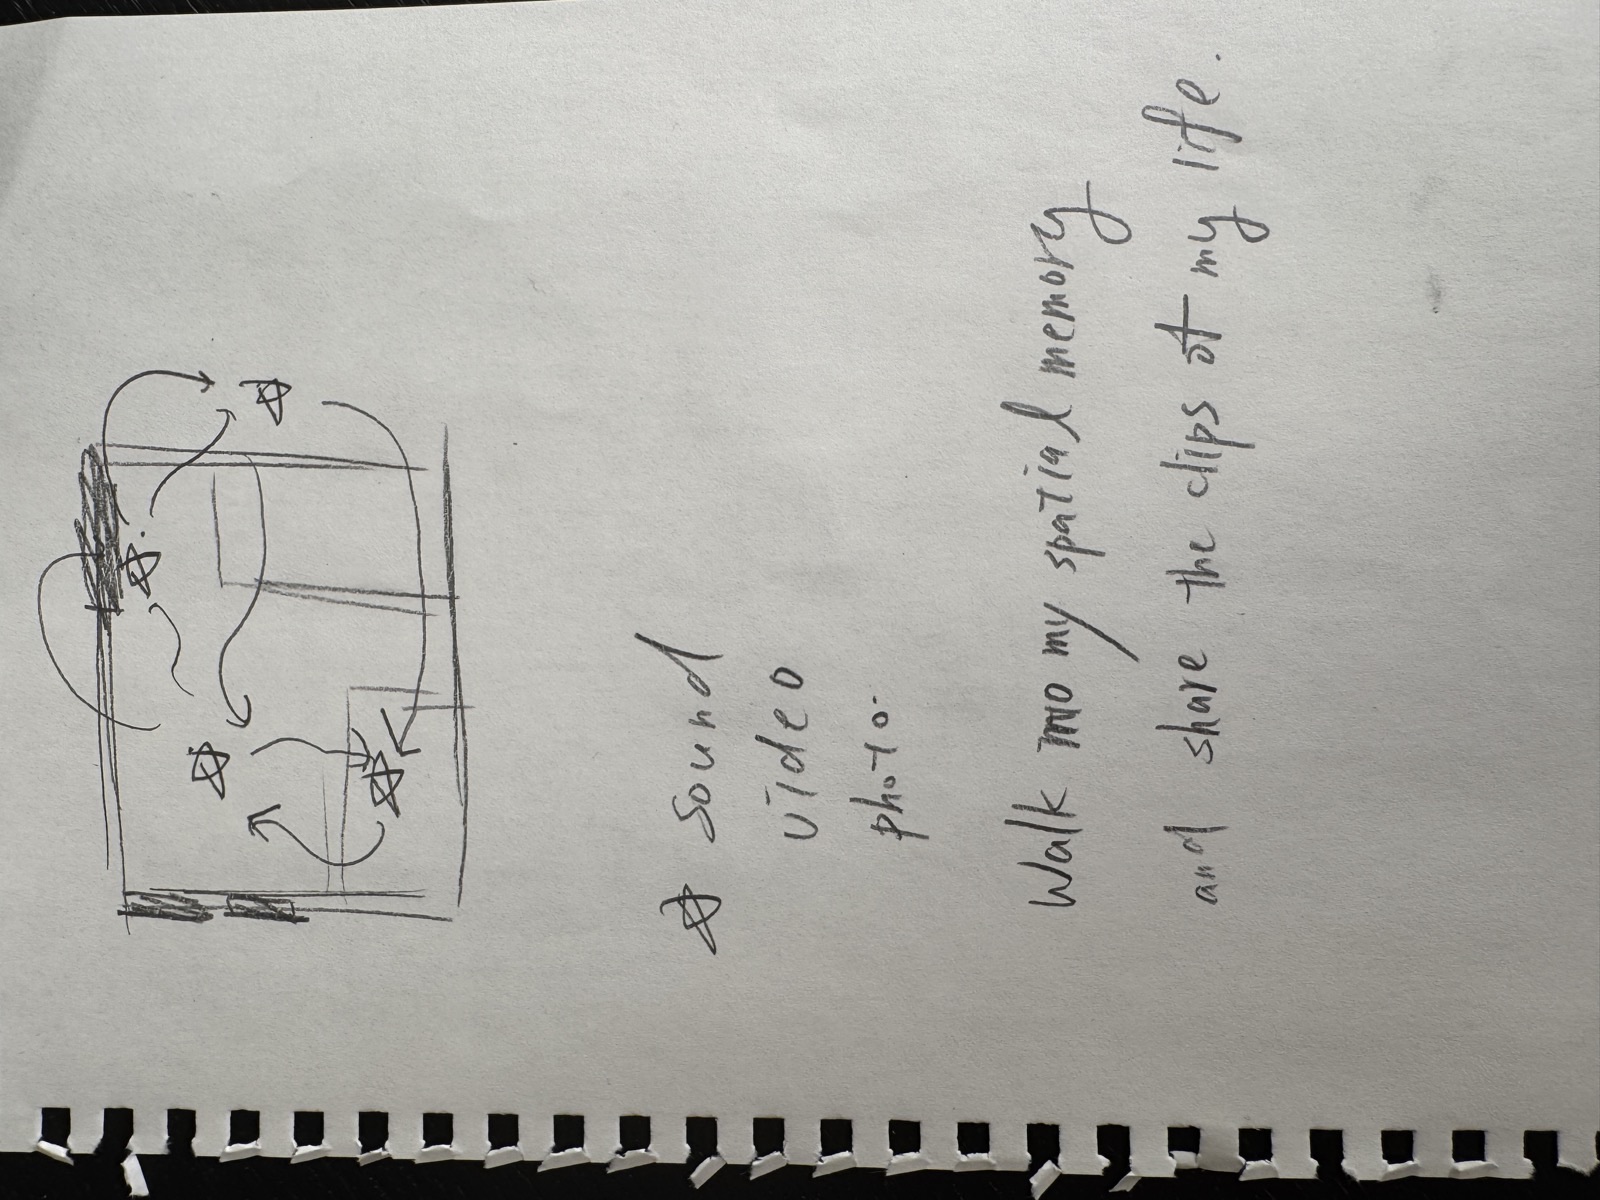 ☆ Sound
video
photo.
Walk into my spatial memory
and share the clips of my life.